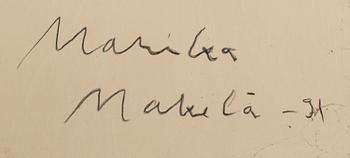 Marika
Mäkelä -91